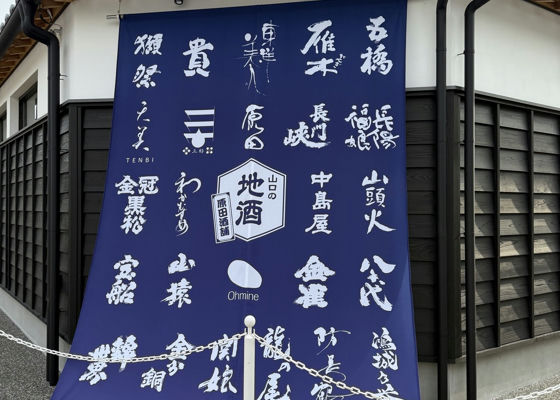 獺祭
貴
東洋美人
雁木
五橋
天美
TENBI
三好
原田
長門峡
長陽福娘
冠黒松
金
わかむすめ
山口の
地酒
原田酒舗
中島屋
山頭火
宝船
山猿
Ohmine
金雀
八千代
金分銅
関娘